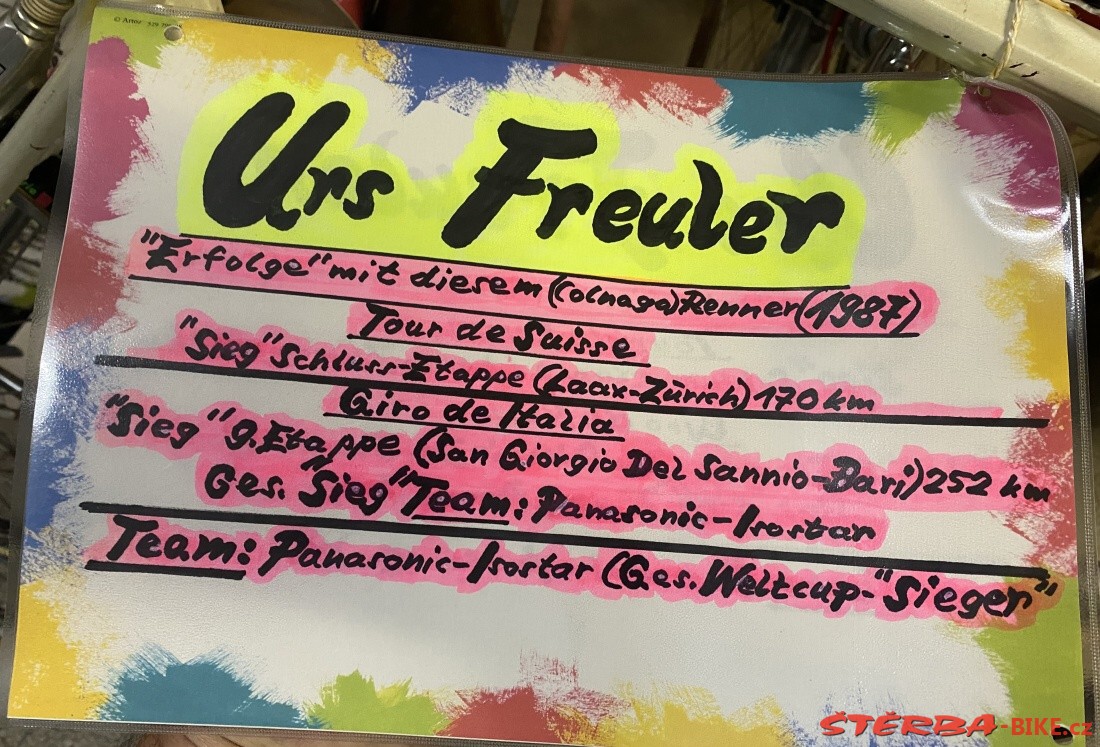 © Artoz
Urs Freuler
"Erfolge" mit diesem (Colnago) Renner (1987)
Tour de Suisse
"Sieg" Schluss-Etappe (Laax-Zürich) 170 km
Giro de Italia
"Sieg" 9. Etappe (San Giorgio Del Sannio-Bari) 252 km
Ges. "Sieg" Team: Panasonic-Isostar
Team: Panasonic-Isostar (Ges. Weltcup-"Sieger"
ŠTĚRBA-BIKE.cz